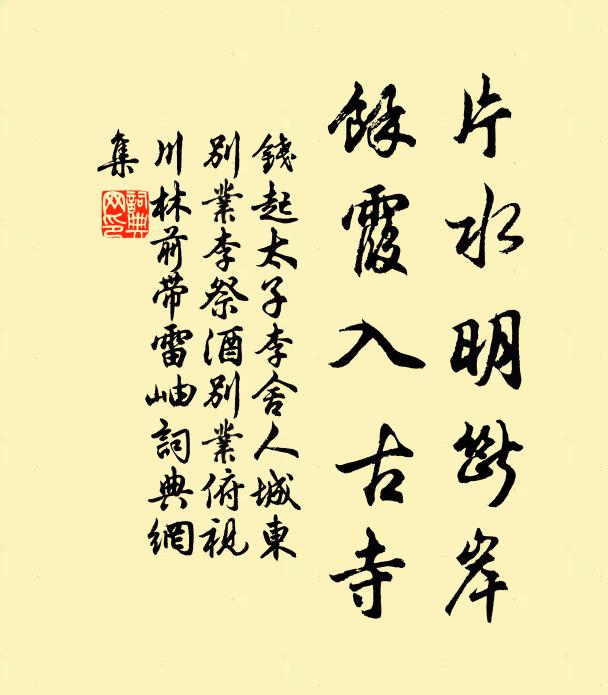 片水明斷岸
餘霞入古寺
錢起太子李舍人城東
別業李祭酒別業俯視
川林前帶雷岫詞典網
集
詞典
网印